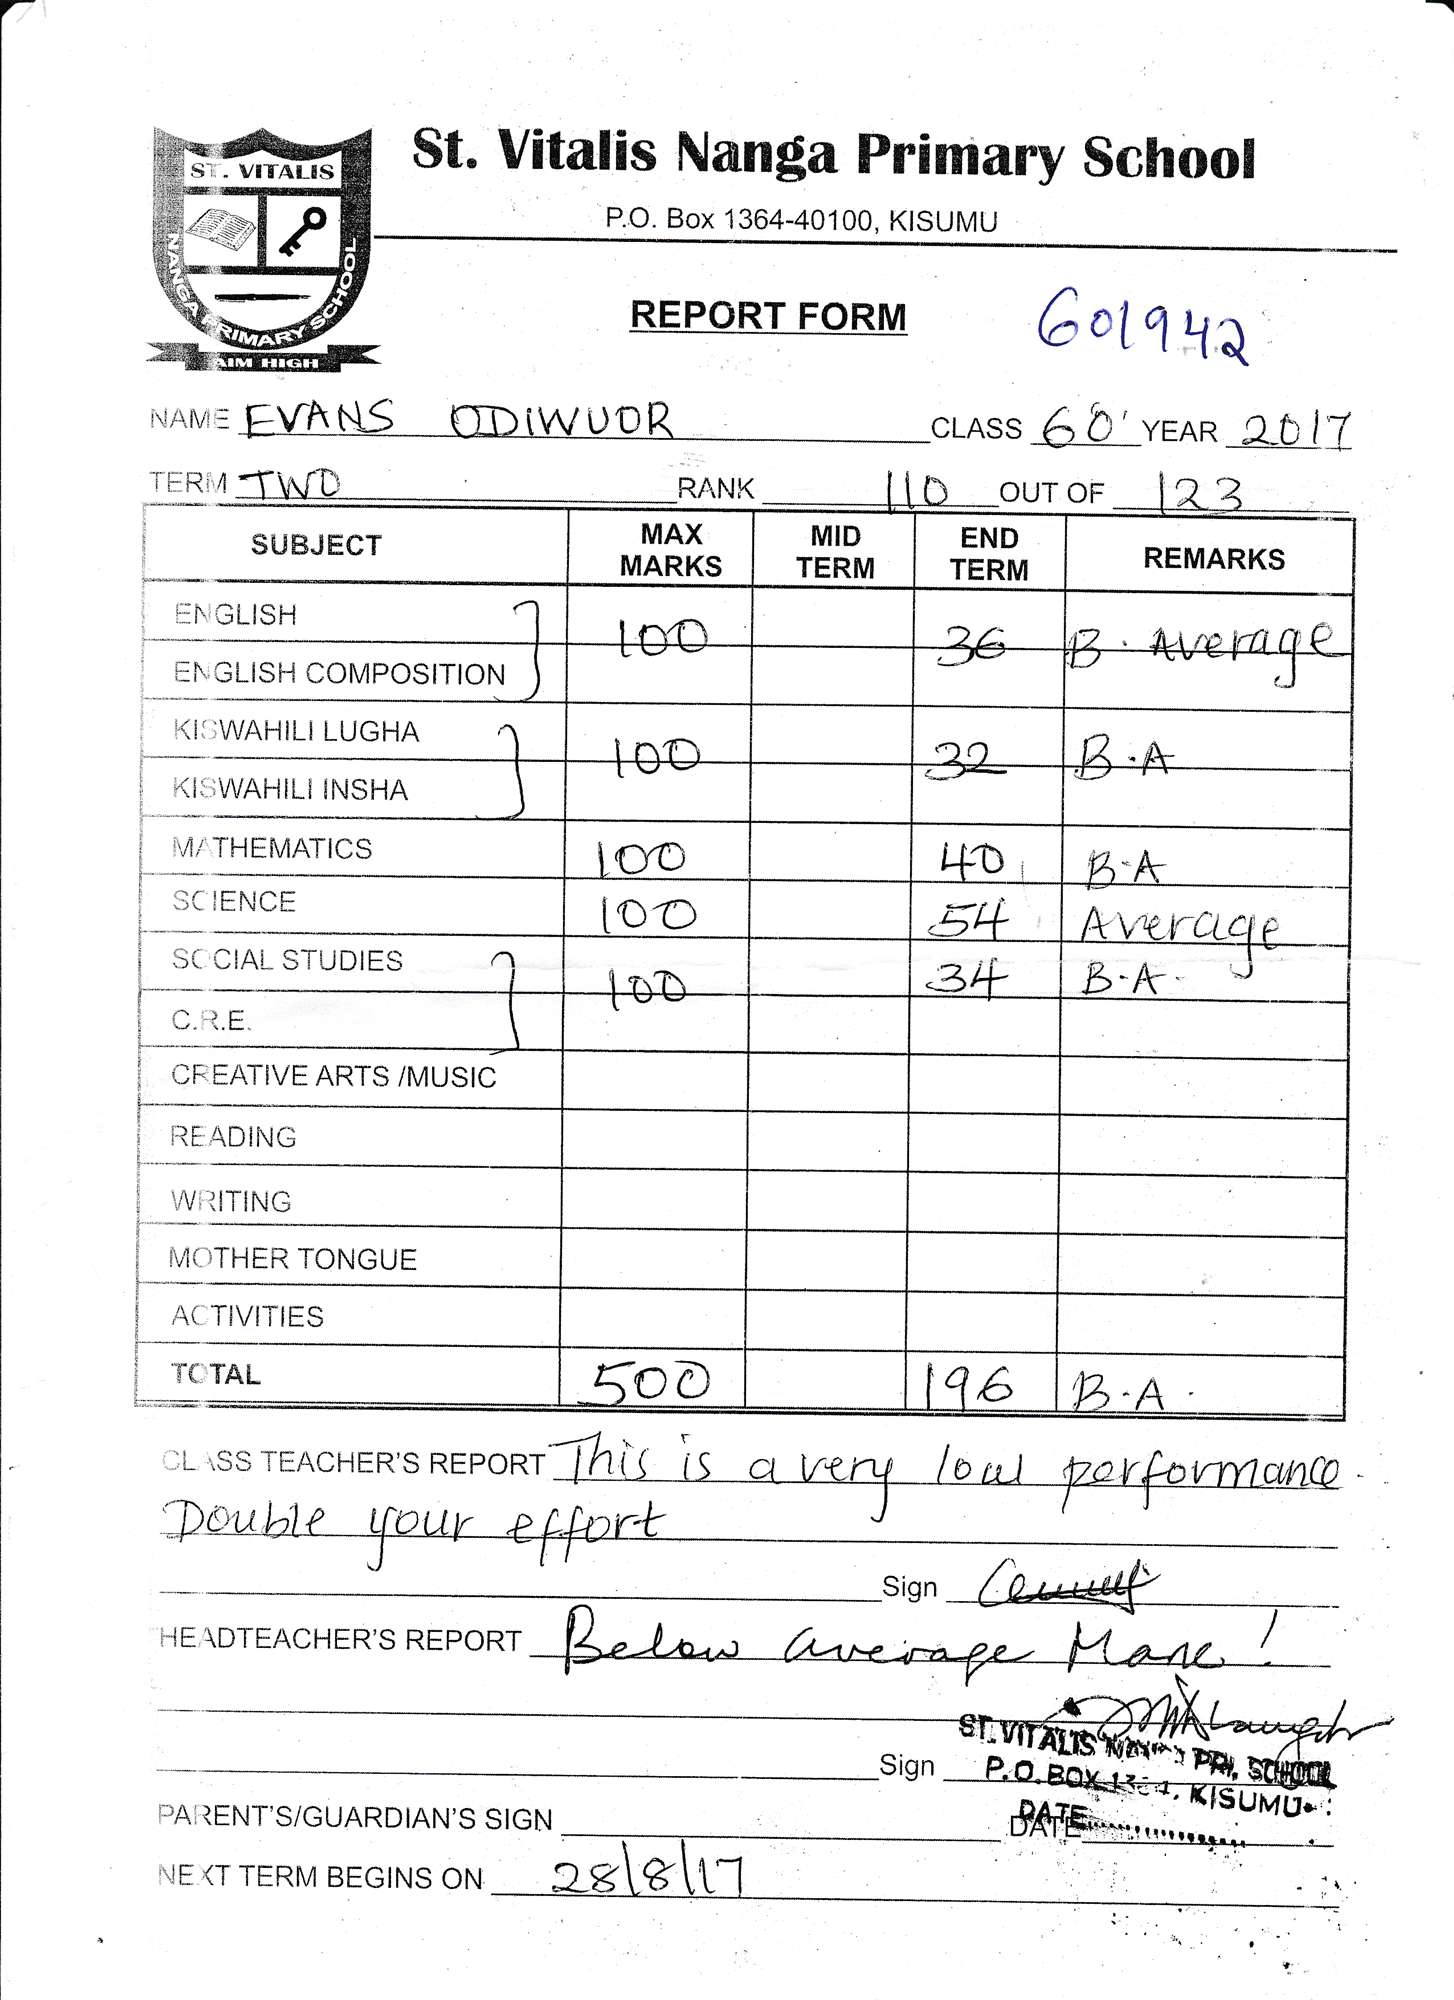 ST. VITALIS
NANGA PRIMARY SCHOOL
AIM HIGH
St. Vitalis Nanga Primary School
P.O. Box 1364-40100, KISUMU
REPORT FORM 601942
NAME EVANS ODIWUOR CLASS 6O' YEAR 2017
TERM TWO RANK 110 OUT OF 123
SUBJECT MAX MARKS MID TERM END TERM REMARKS
ENGLISH
100 36 B. Average
ENGLISH COMPOSITION
KISWAHILI LUGHA
100 32 B.A
KISWAHILI INSHA
MATHEMATICS 100 40 B.A
SCIENCE 100 54 Average
SOCIAL STUDIES 100 34 B.A.
C.R.E.
CREATIVE ARTS /MUSIC
READING
WRITING
MOTHER TONGUE
ACTIVITIES
TOTAL 500 196 B.A.
CLASS TEACHER'S REPORT This is a very low performance.
Double your effort
Sign
HEADTEACHER'S REPORT Below average Mane!
ST. VITALIS PRI. SCHOOL
Sign P.O. BOX KISUMU
DATE
PARENT'S/GUARDIAN'S SIGN DATE
NEXT TERM BEGINS ON 28/8/17